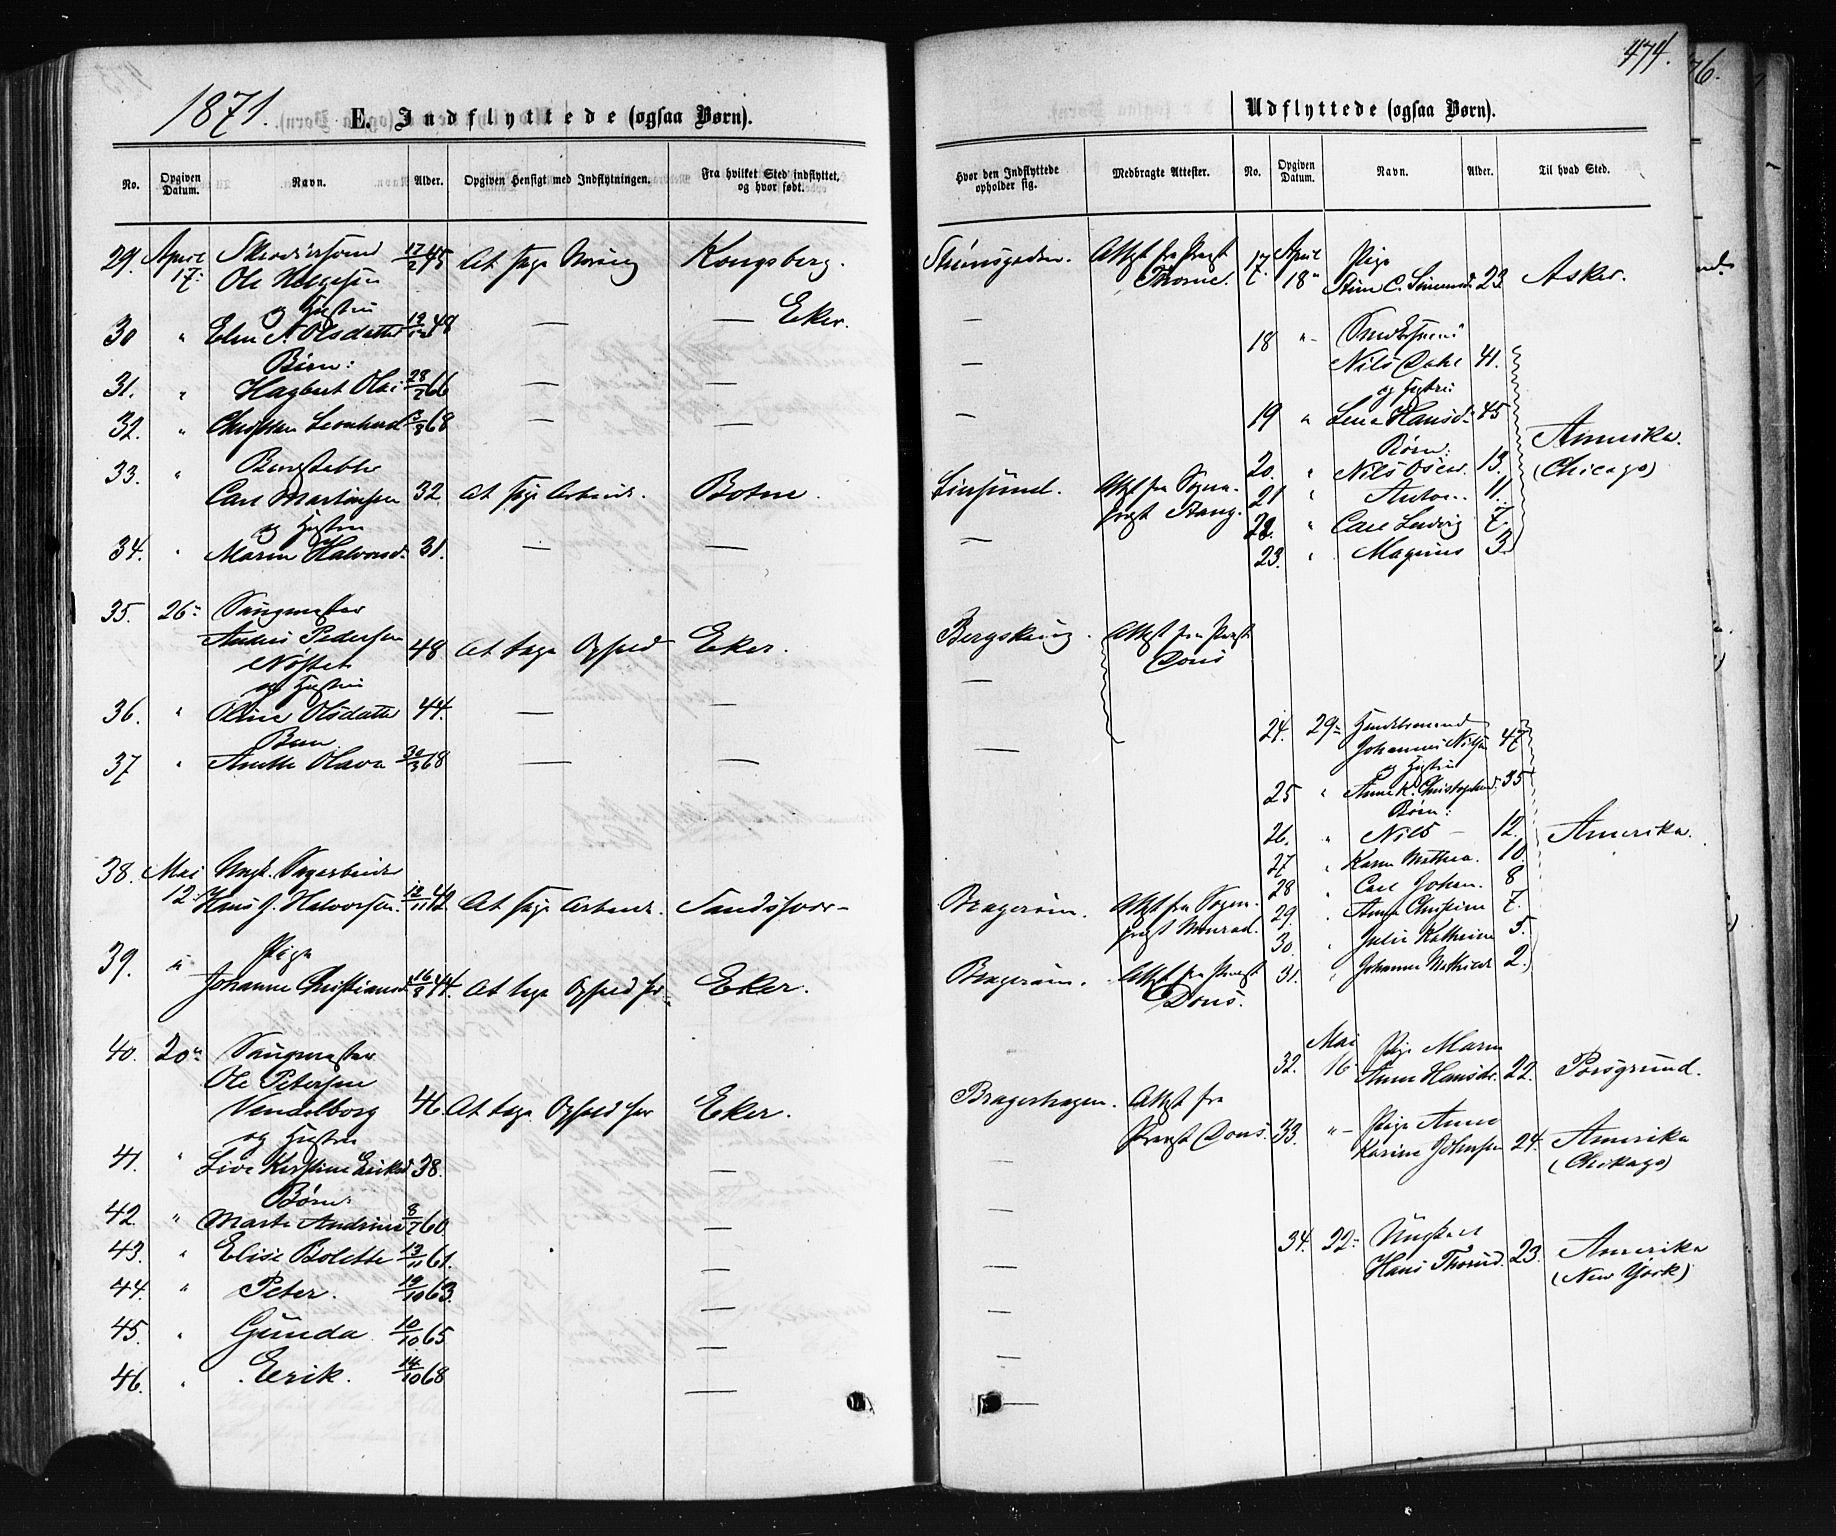 474.
1871.
E. Indflyttede (ogsaa Børn).
No. Opgiven Datum. Navn. Alder. Opgiven Hensigt med Indflytningen. Fra hvilket Sted indflyttet, og hvor født.
29. April 17. 17/2 45 At søge Næring Kongsberg.
Ole Helgesen
og Hustru
30 " Elen Olsdatter 48 — — Eker.
Børn:
31. " Hagbart Olai 28/2 66 — —
32. " Leonhard 68 — —
33. "
Carl Martinsen 32. At søge Arbeide. Botne.
og Hustru
34. " Maren Halvorsd. 31. — —
35. 26 Saugmester
Anders Pedersen 48 At tage Ophold Eker.
Nøstet
og Hustru
36. " Oline Olsdatter 44. — —
Barn
37 " Anette Olava 30/3 68 — —
38. Mai 12. Ungk. Sagarbeider
Hans J. Halvorsen. 42 At søge Arbeide. Sandsvær
39. " Pige
Johanne Christiansd. 16/8 44. At tage Ophold her Eker.
40. 20 Saugmester
Ole Petersen
Vendelborg 46. At tage Ophold her Eker.
og Hustru
41. " Live Kirstine Eriksd. 38. —
Børn:
42. " Marte Andrine 8/7 60 —
43. " Elise Bolette 13/11 61. —
44. " Peter. 19/10 63. —
45. " Gunda 10/10 65 —
46. " Erik. 14/10 68 —
Udflyttede (ogsaa Børn).
Hvor den Indflyttede opholder sig. Medbragte Attester. No. Opgiven Datum. Navn. Alder. Til hvad Sted.
Strømsgodset. Attest fra Præst 17. April 18 Pige
23 Asker.
—
18 " Nils Dahl 41.
og Hustru
— 19 " Lene Hansd. 45
Børn:
Amerika.
(Chicago)
20. " Nils Oscar. 13.
Attest fra Sogne-
præst 21 " Anton. 11.
22. " Carl Ludvig 7.
— 23. " Magnus 3.
Bergskaug. Attest fra Præst
Dons
—
24. 29 Handelsmand
— Johannes Nilsen 47
og Hustru
25 " Anne K. Christophersd. 35
Børn:
26. " Nils — 12. Amerika.
27 " Karen Mathea. 10.
28 " Carl Johan. 8
Bragerøen. Attest fra Sogne-
præst Monrad. 29. " Anna Christine 7.
30. " Julie Kathrine 5.
Bragerøen. Attest fra Præst
Dons. 31. " Johanne Mathilde 2.
32. Mai 16 Pige Maren
Anne Hansdr. 22. Porsgrund.
Bragerhagen. Attest fra
Præst Dons. 33. " Pige Anne
Karine Johnsen 24. Amerika
(Chikago)
—
—
34. 22 Ungkarl
Hans Thorud. 23. Amerika
(New York)
—
—
—
—